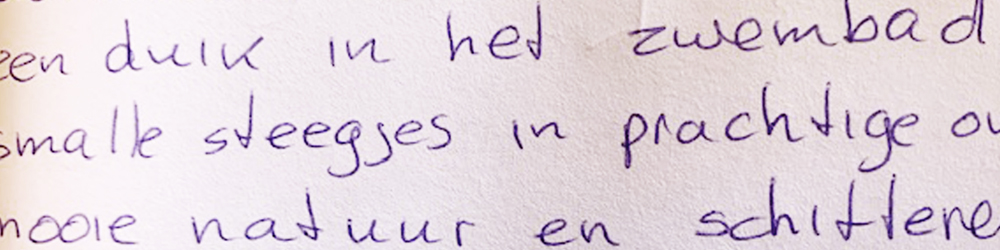 een duik in het zwembad
smalle steegjes in prachtige ou
mooie natuur en schittere